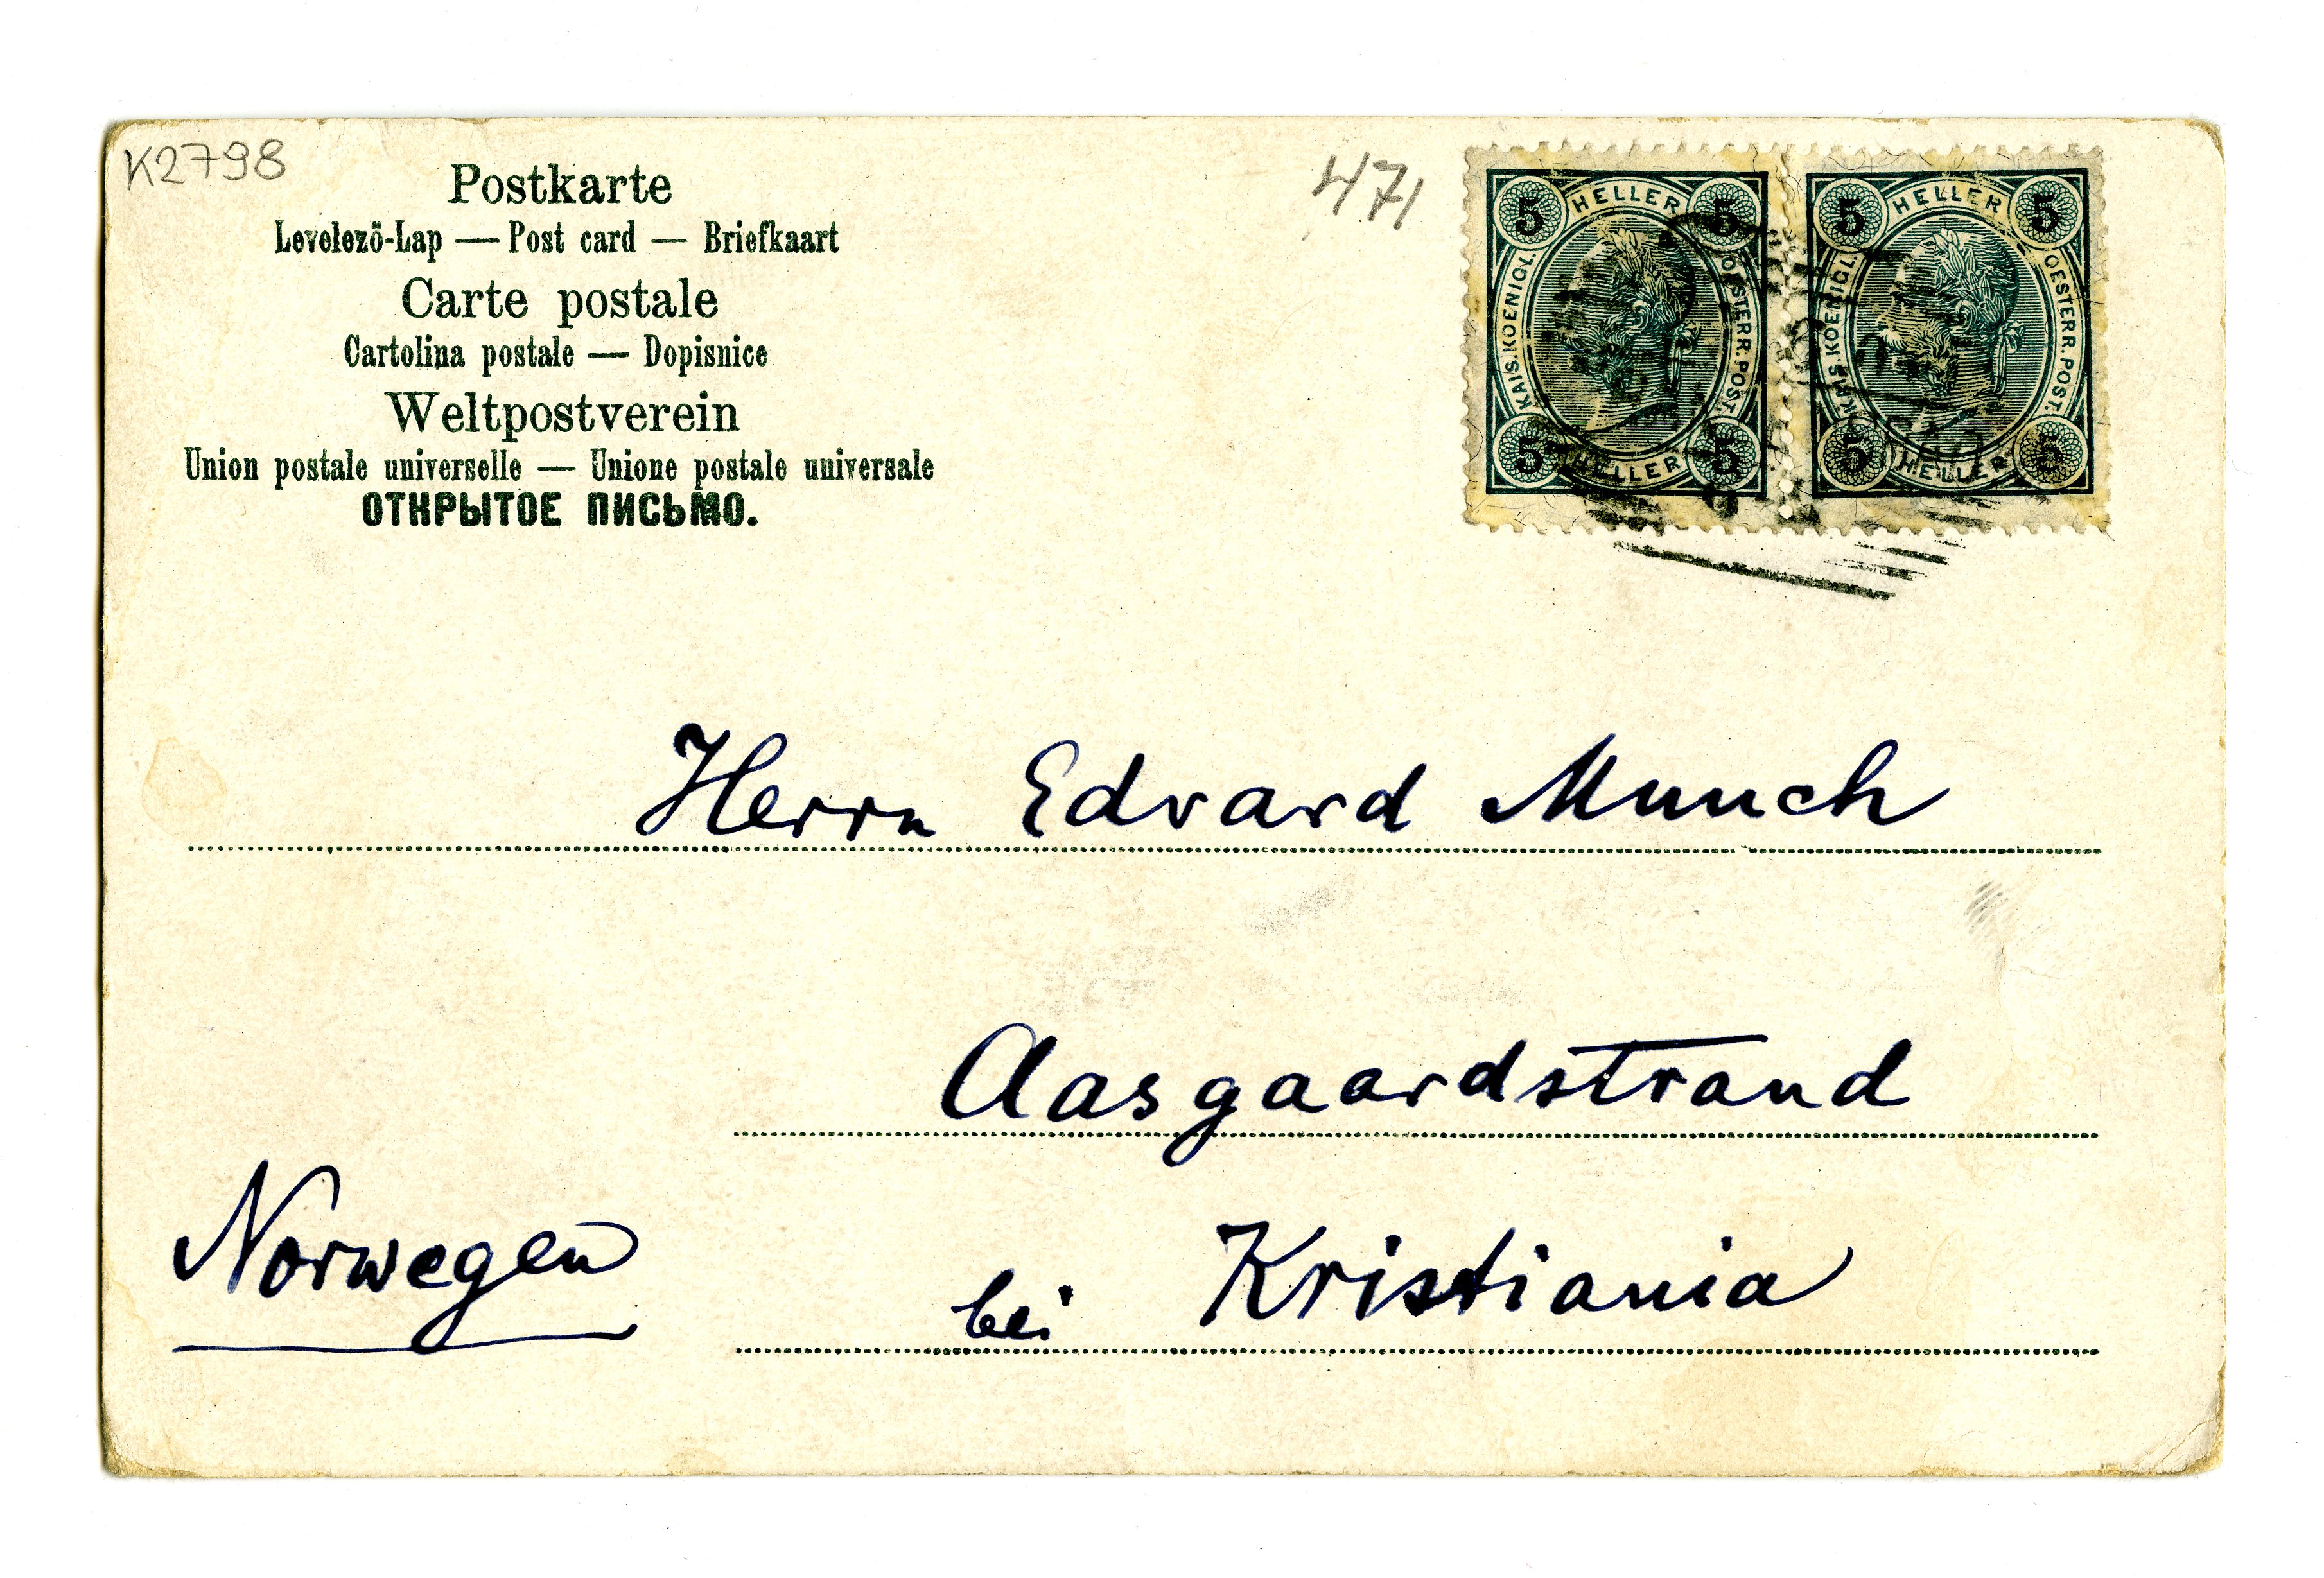 K2798
Postkarte
Levelező-Lap — Post card — Briefkaart
Carte postale
Cartolina postale — Dopisnice
Weltpostverein
Union postale universelle — Unione postale universale
ОТКРЫТОЕ ПИСЬМО.
471
5 HELLER 5
KAIS. KOENIGL. OESTERR. POST.
5 HELLER 5
5 HELLER 5
KAIS. KOENIGL. OESTERR. POST.
5 HELLER 5
Herrn Edvard Munch
Aasgaardstrand
Norwegen
bei Kristiania